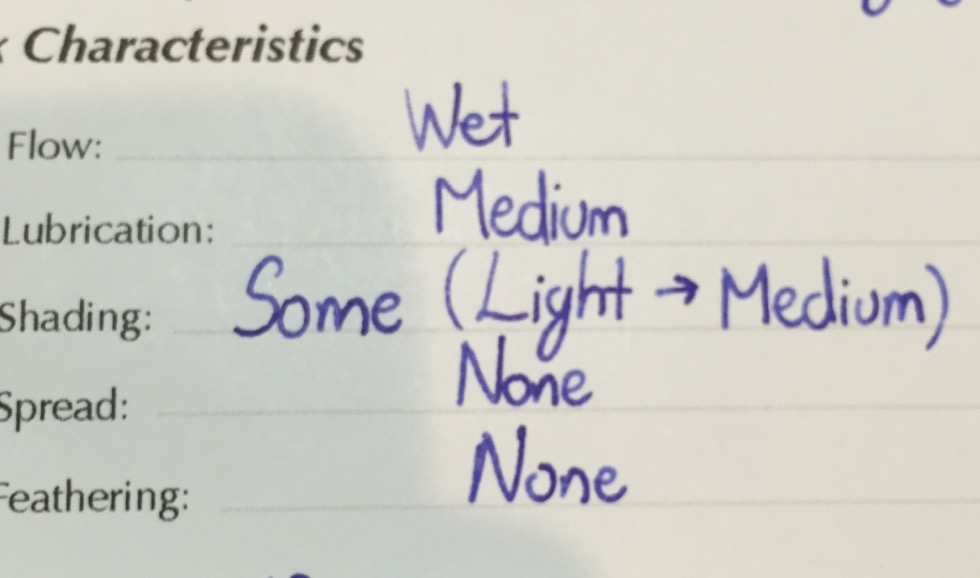 Characteristics
Flow: Wet
Lubrication: Medium
Shading: Some (Light → Medium)
Spread: None
Feathering: None